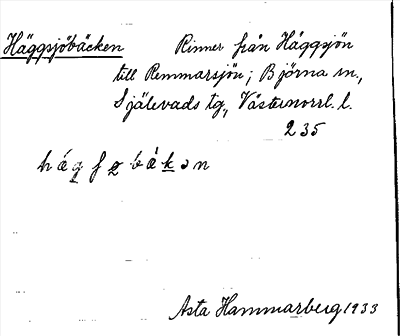 Häggsjöbäcken Rinner från Häggsjön
till Remmarsjön; Björna sn.,
Själevads tg, Västernorrl. l.
235
Asta Hammarberg 1933